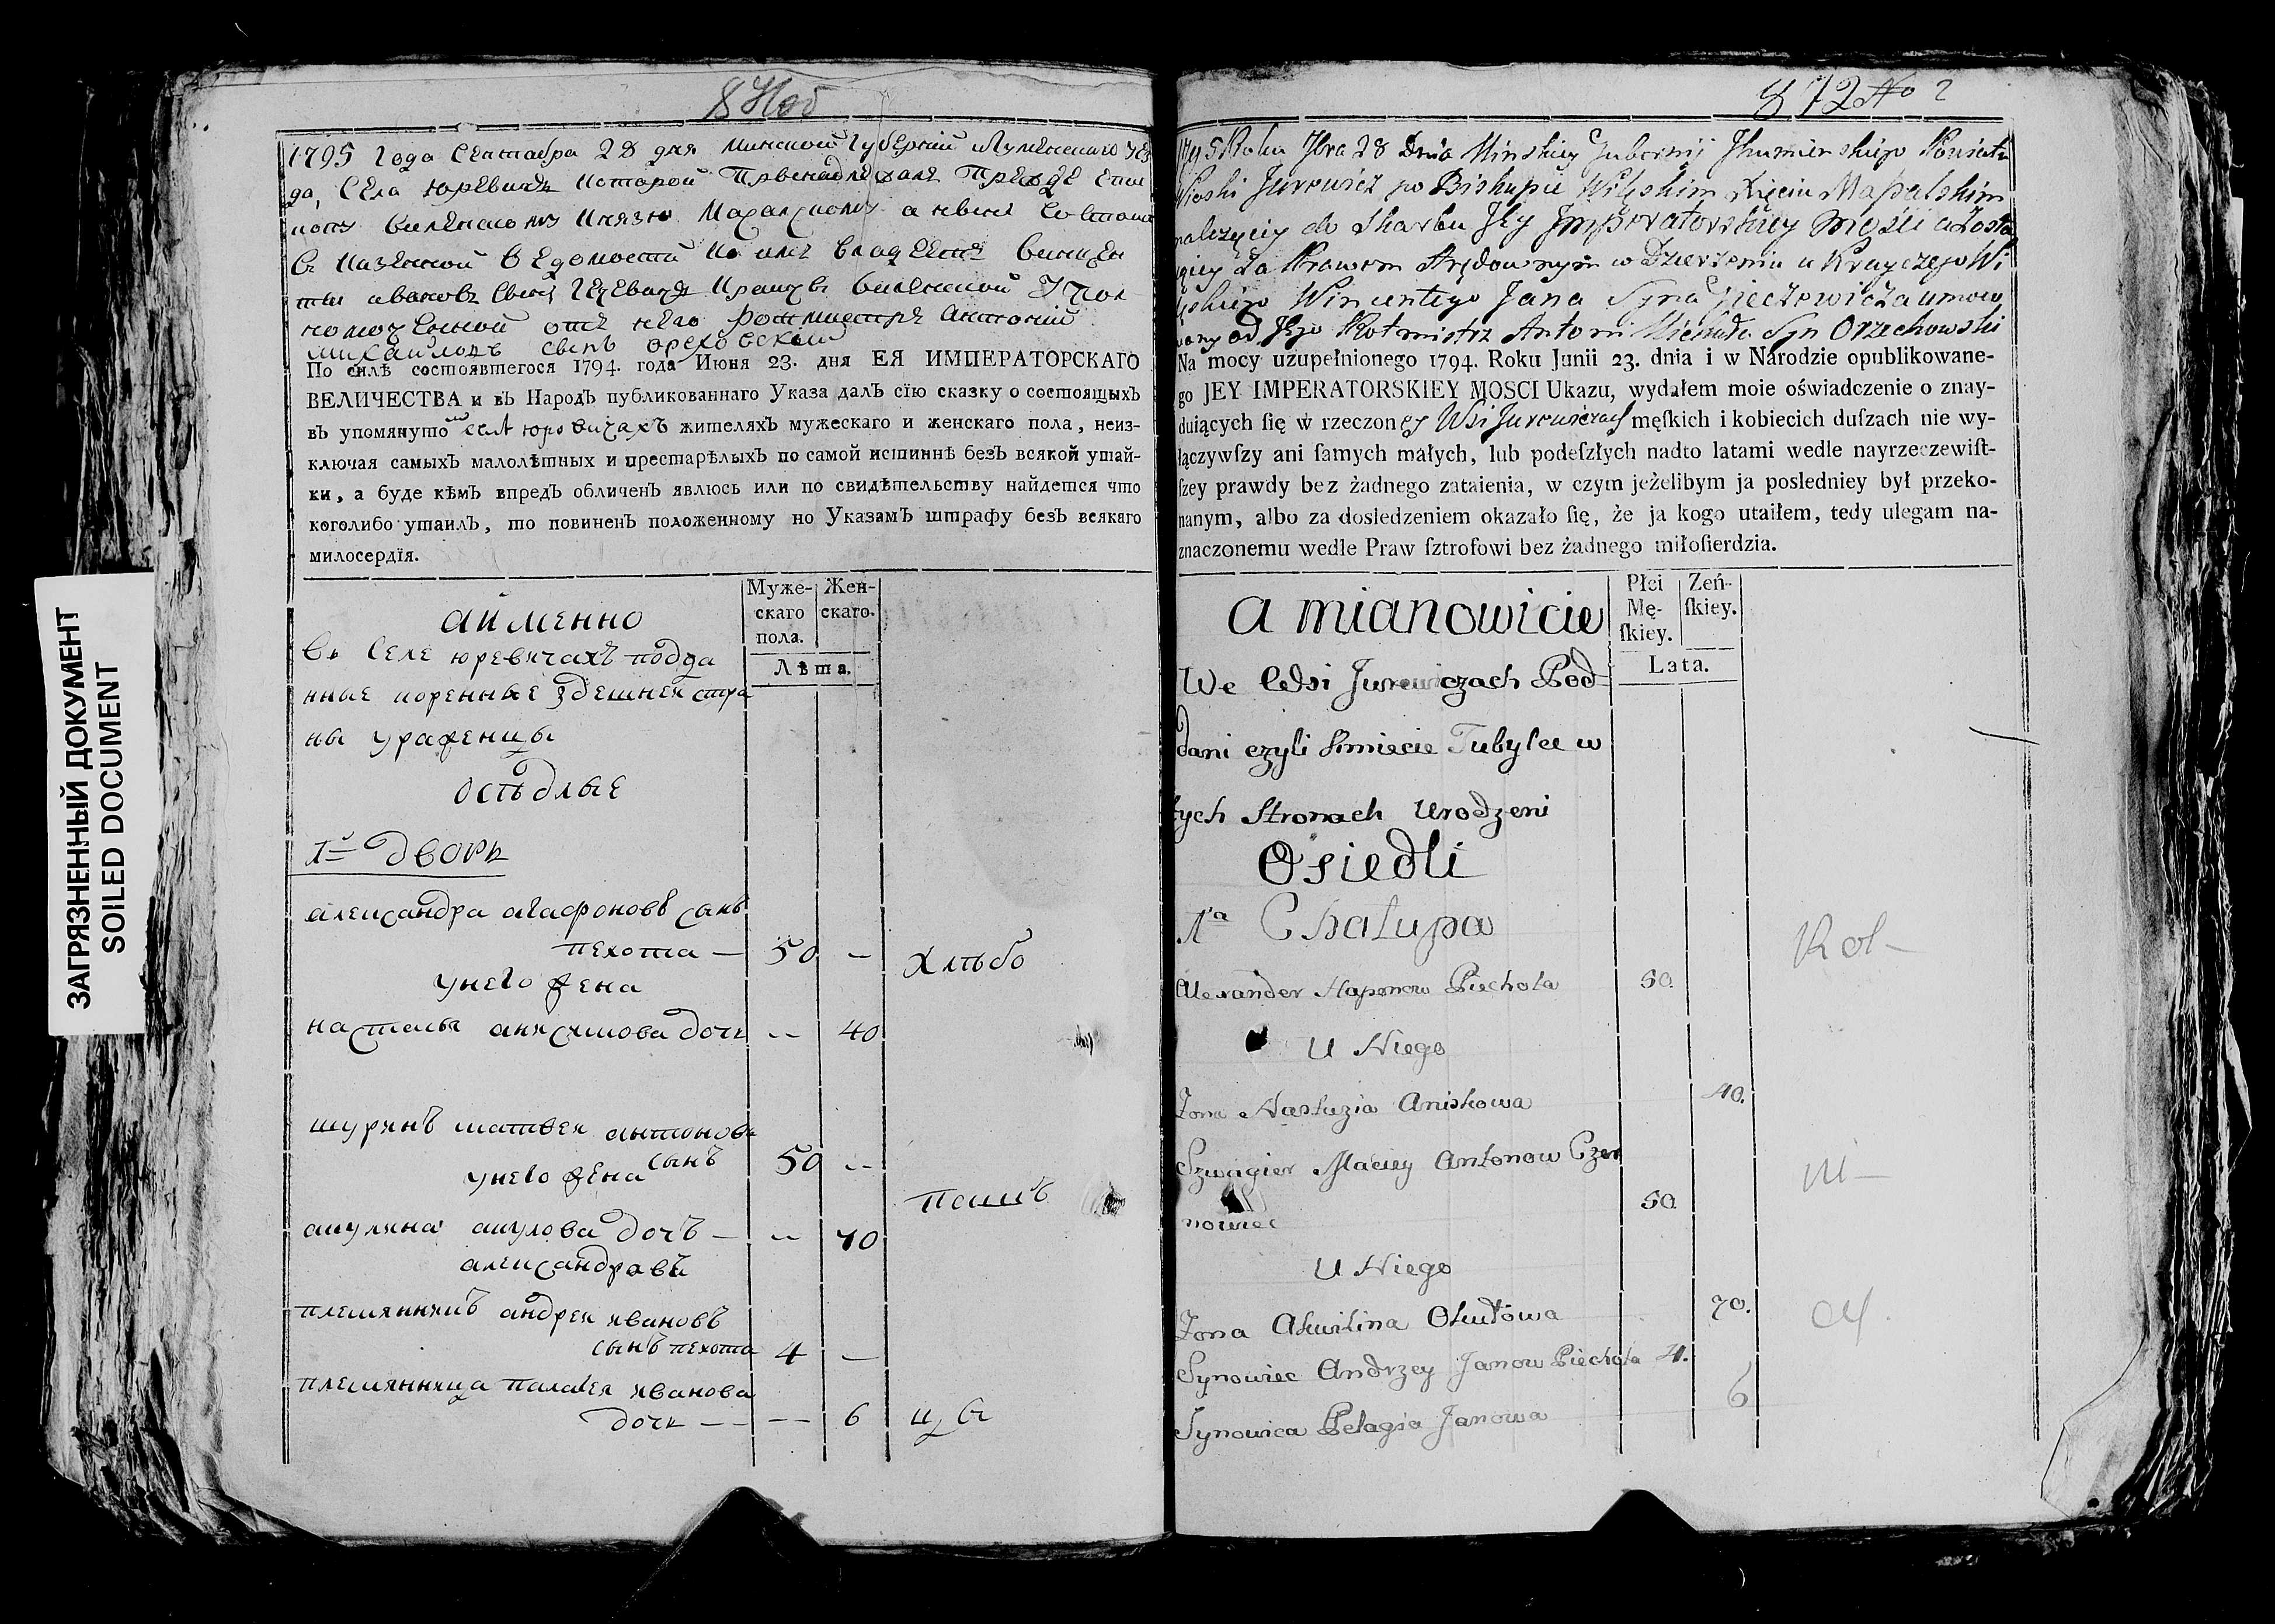 ЗАГРЯЗНЕННЫЙ ДОКУМЕНТ
SOILED DOCUMENT
1795 года Сентабра 28 дня Минской Губернии Игуменскаго Уез
да, Села Юревичъ которой Принадлежалъ Прежде епис
копу виленскому Князю Масалскому а ныне Состоитъ
в Казенной Ведомости
По силѣ состоявшегося 1794. года Июня 23. дня ЕЯ ИМПЕРАТОРСКАГО
ВЕЛИЧЕСТВА и въ Народъ публикованнаго Указа далъ сїю сказку о состоящыхъ
въ упомянутомъ селѣ юревичахъ жителяхъ мужескаго и женскаго пола, неиз-
ключая самыхъ малолѣтных и престарѣлыхъ по самой истиннѣ безъ всякой утай-
ки, а буде кѣмъ впредъ обличенъ явлюсь или по свидѣтельству найдется что
коголибо утаилъ, то повиненъ положенному по Указамъ штрафу безъ всякаго
милосердїя.
Муже-
скаго
пола.
Жен-
скаго.
Лѣта.
а именно
въ Селе юревичахъ подда
нные коренные здешнея стра
ны ураженцы
осѣдлые
1й дворъ
александра агафоновъ сынъ
пехота — 50 —
Хлѣбо
унего жена
настасья анисимова дочь — 40
шуринъ матвеи антоновъ
сынъ 50 —
унего жена
пашъ
акулина акулова дочъ — — 70
александровъ
племянникъ андреи ивановъ
сынъ пехота 4 —
племянница палагея иванова
дочь — — — 6
872 No 2
1795 Roku 7bra 28 Dnia Minskiey Gubernij Ihumenskiego Powiatu
Wioski Jurewicz po Biskupie Wilenskim Xięciu Massalskim
należącey do Skarbu Jey Imperatorskiey Mości a Zosta
iącey za Prawem Arędownym w Dzierżeniu u Krayczego Wi
leńskiego Wincentego Jana Syna Gieczewicza umoco
wany od Jego Rotmistrz Antoni Michała Syn Orzechowski
Na mocy uzupełnionego 1794. Roku Junii 23. dnia i w Narodzie opublikowane-
go JEY IMPERATORSKIEY MOSCI Ukazu, wydałem moie oświadczenie o znay-
duiących ſię w rzeczoney Wsi Jurewiczach męſkich i kobiecich duſzach nie wy-
łączywſzy ani ſamych małych, lub podeſzłych nadto latami wedle nayrzeczewiſt-
ſzey prawdy bez żadnego zataienia, w czym jeżelibym ja posledniey był przeko-
nanym, albo za dosledzeniem okazało ſię, że ja kogo utaiłem, tedy ulegam na-
znaczonemu wedle Praw ſztrofowi bez żadnego miłoſierdzia.
Płci
Mę-
ſkiey.
Zeń-
ſkiey.
Lata.
a mianowicie
We Wsi Jurewiczach Pod
dani czyli Kmiecie Tubylce w
tych Stronach Urodzeni
Osiedli
1a Chałupa
Alexander Haponow Piechota 50.
U Niego
Żona Nastazia Aniskowa 40.
Szwagier Maciey Antonow Czer
nowiec 50
U Niego
Żona Akwilina Okułowa 70.
Synowiec Andrzey Janow Piechota 4.
Synowica Pelagia Janowa 6